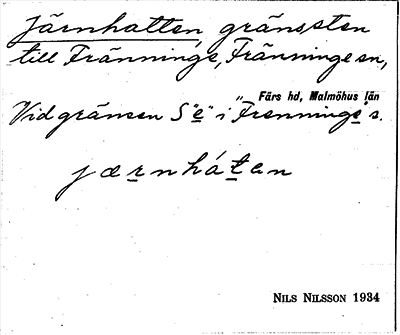 Järnhatten, gränssten
till Tränninge, Fränninge sn,
Färs hd, Malmöhus län
Vid gränsen S "e" i "Frenninge" s.
jærnháten
NILS NILSSON 1934